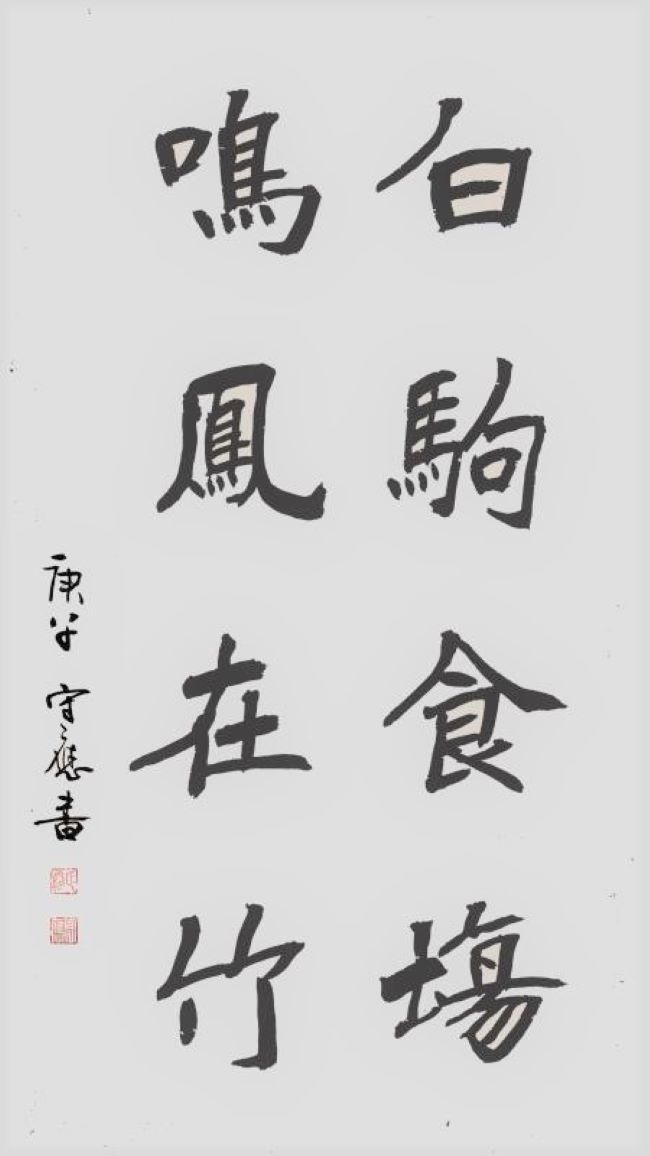 白駒食場
鳴鳳在竹
庚子 守應書